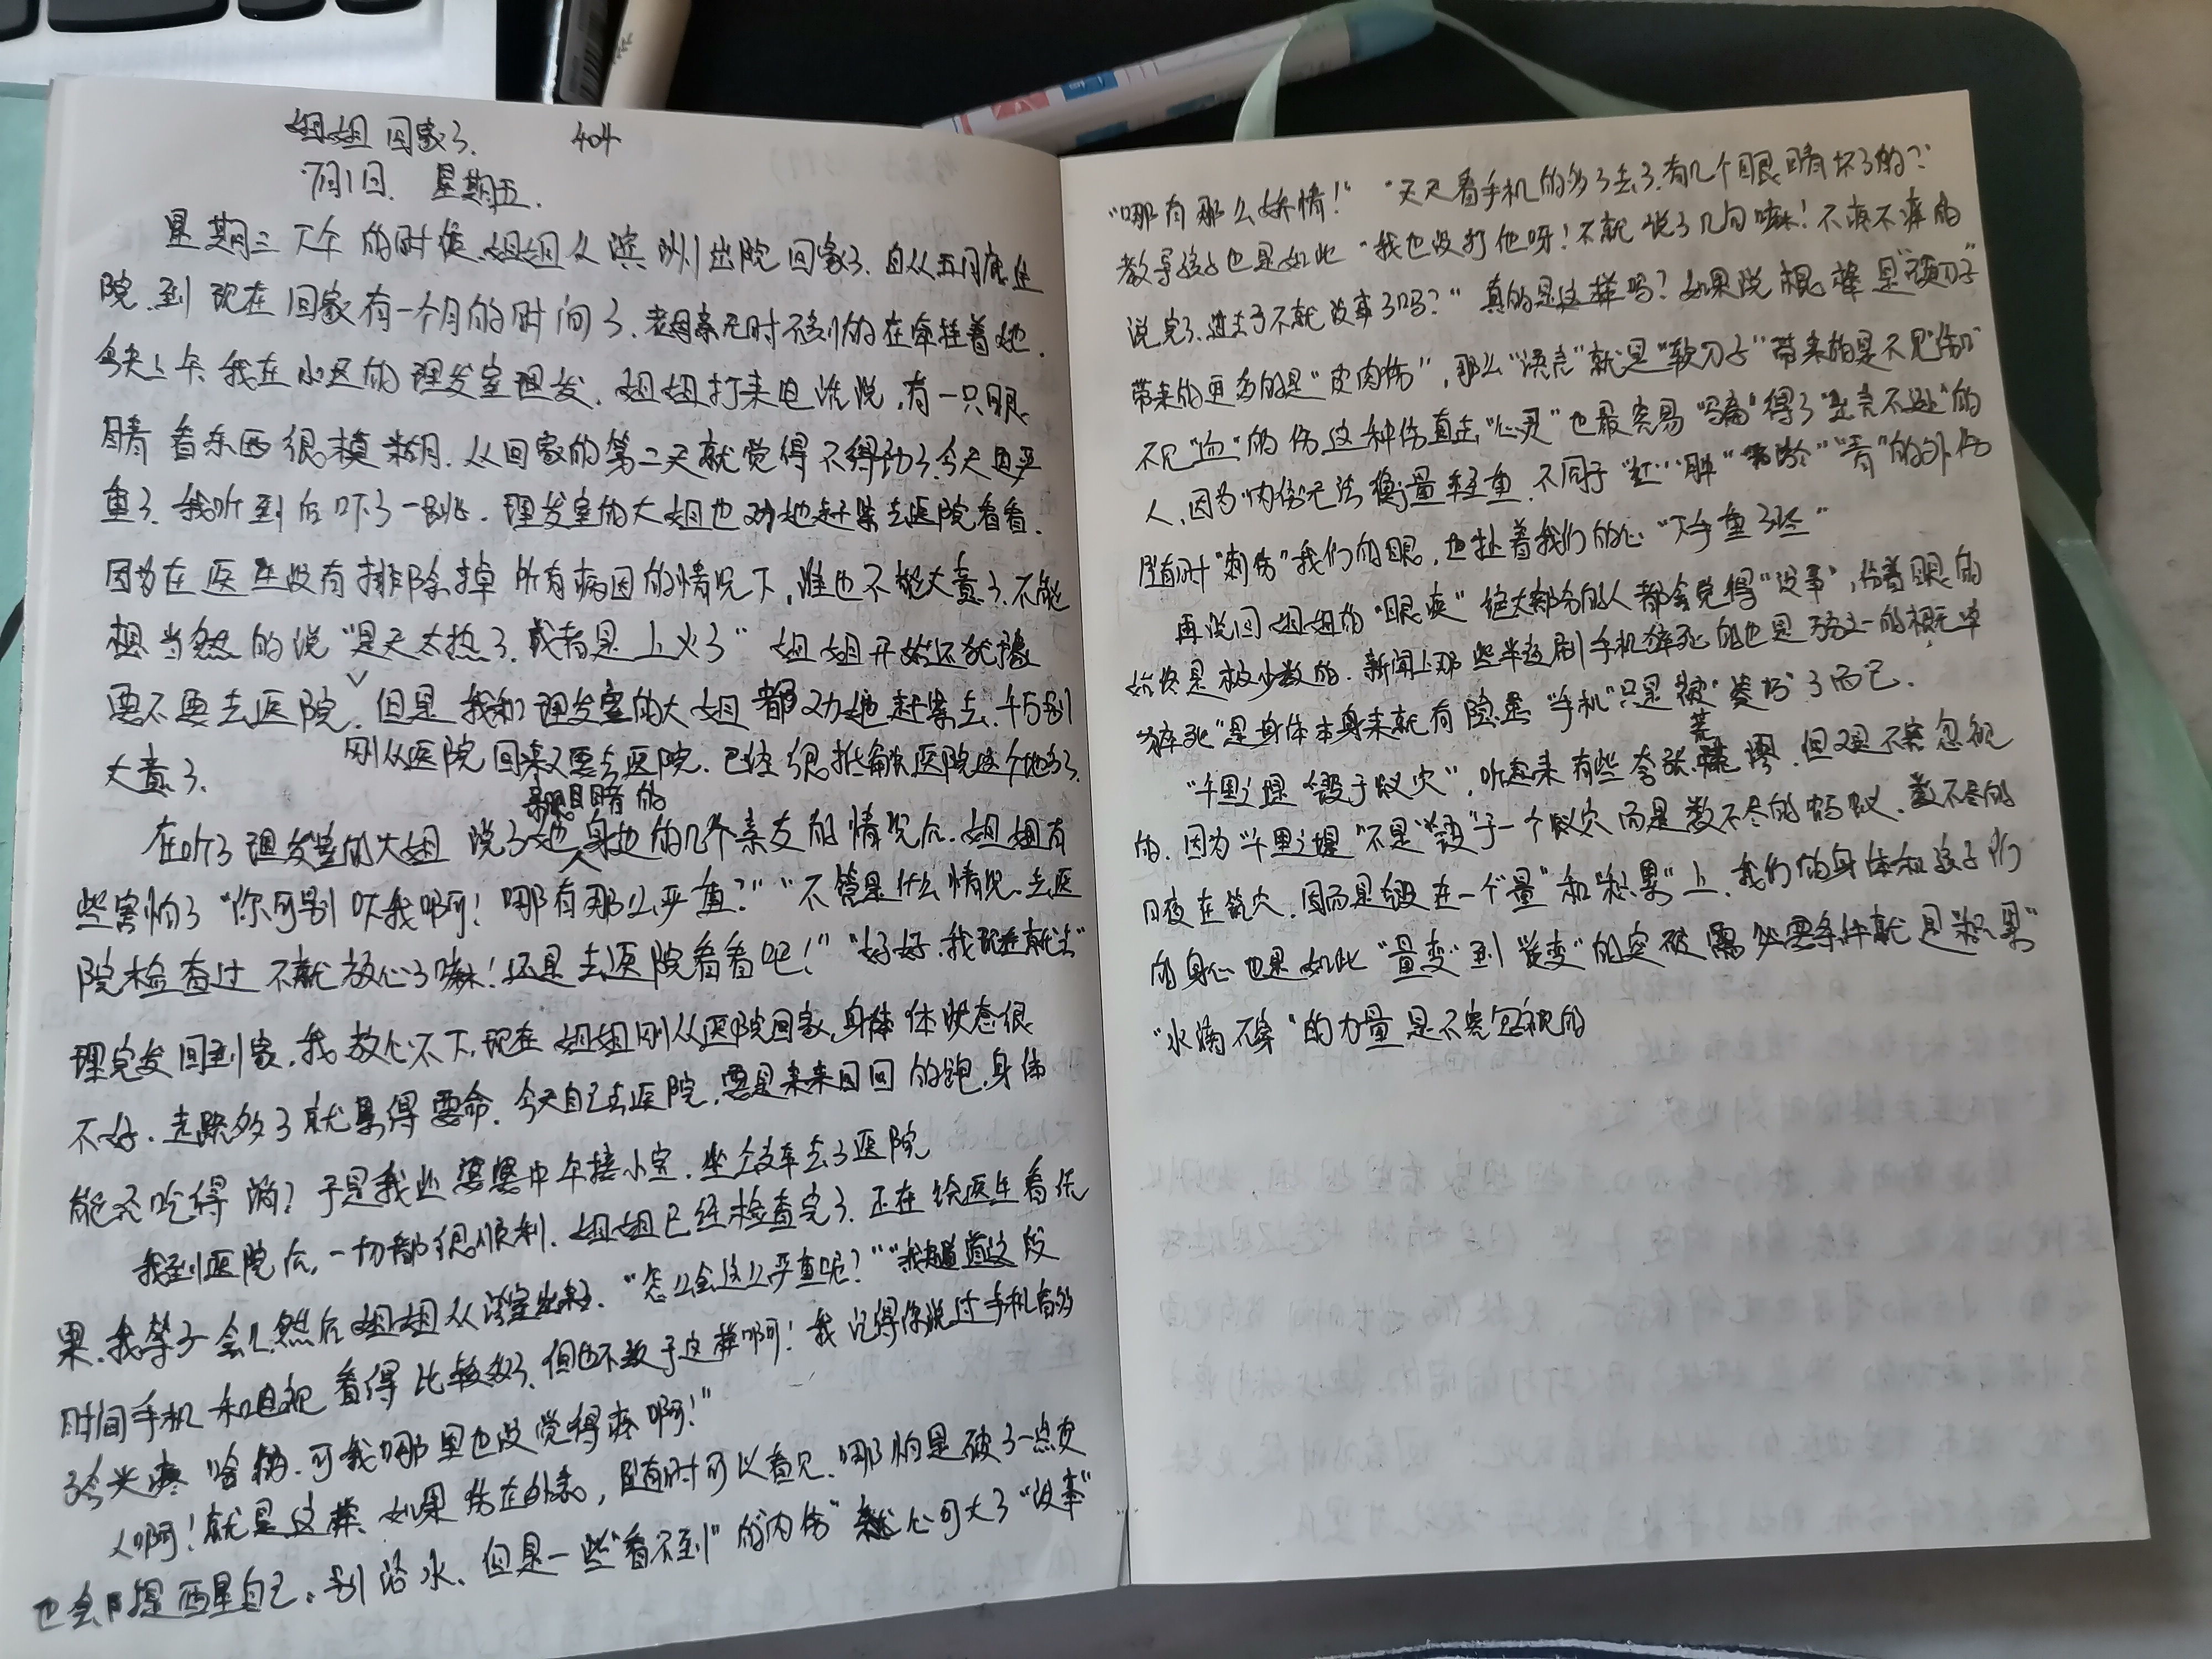 姐姐回家了. 404
7月1日. 星期五.
星期三下午的时候.姐姐从滨州出院回家了.自从五月底住
院.到现在回家有一个月的时间了.老母亲无时不刻的在牵挂着她.
今天上午我在小区的理发室理发.姐姐打来电话说,有一只眼
睛看东西很模糊.从回家的第二天就觉得不得劲了.今天更严
重了.我听到后吓了一跳.理发室的大姐也劝她赶紧去医院看看.
因为在医生没有排除掉所有病因的情况下,谁也不能大意了.不能
想当然的说"是天太热了.或者是上火了"姐姐开始还犹豫
要不要去医院.但是我和理发室的大姐都劝她赶紧去.千万别
大意了. 刚从医院回来又要去医院.已经很抵触医院这个地方了.
眼睛的
在听了理发室的大姐说了她身边的几个亲友的情况后.姐姐有
些害怕了"你可别吓我啊!哪有那么严重?""不管是什么情况.去医
院检查过不就放心了嘛!还是去医院看看吧!""好好.我现在就去"
理完发回到家.我放心不下.现在姐姐刚从医院回家,身体状态很
不好.走路多了就累得要命.今天自己去医院,要是来来回回的跑,身体
能否吃得消?于是我让婆婆中午接小宝.坐公交车去了医院
我到医院后,一切都很顺利.姐姐已经检查完了.正在给医生看结
果.我等了会儿然后姐姐从诊室出来."怎么会这么严重呢?""我知道这段
时间手机和电视看得比较多.但也不致于这样啊!我记得你说过手机看多
了会头疼啥的.可我哪里也没觉得疼啊!"
人啊!就是这样.如果伤在外表,随时可以看见.哪怕是破了一点皮
也会提醒自己.别沾水.但是一些"看不到"的"内伤"就心可大了"没事"
"哪有那么娇情!" "天天看手机的多了去了.有几个眼睛坏了的?"
教导孩子也是如此"我也没打他呀!不就说了几句嘛!不疼不痒的
说完了.过去了不就没事了吗?"真的是这样吗?如果说棍棒是"硬刀子"
带来的更多的是"皮肉伤",那么"语言"就是"软刀子"带来的是不见"伤口"
不见"血"的伤这种伤直击"心灵"也最容易得了 的
人,因为"内伤无法衡量轻重.不同于"红""肿" "青"的外伤
随时"刺伤"我们的眼,也扯着我们的心"下手重了些"
再说回姐姐的"眼疾"绝大部分的人都会觉得"没事",伤着眼的
始终是极少数的.新闻上那些半夜刷手机猝死的也是万分之一的概率
"猝死"是身体本身来就有隐患"手机"只是被" "了而已.
"千里之堤毁于蚁穴",听起来有些夸张荒谬.但又是不容忽视
的.因为"千里之堤"不是"毁"于一个蚁穴而是数不尽的蚂蚁.数不尽的
日夜在筑穴.因而是毁在一个"量"和"积累"上.我们的身体和孩子们
的身心也是如此"量变"到"质变"的突破需必要条件就是"积累"
"水滴石穿"的力量是不容忽视的